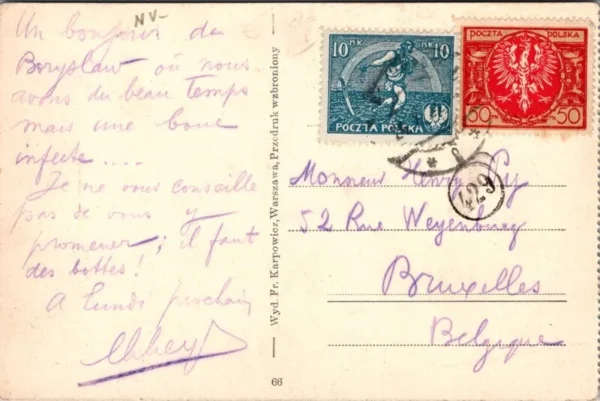 NV-
Un bonjour de
Boryslaw où nous
avons du beau temps
mais une boue
infecte....
Je ne vous conseille
pas de vous y
promener; il faut
des bottes!
A Lundi prochain
Wyd. Fr. Karpowicz, Warszawa, Przedruk wzbroniony
66
10 MK 10
POCZTA POLSKA
POCZTA POLSKA
50 50
429
Monsieur Henry
52 Rue Weyenburg
Bruxelles
Belgique